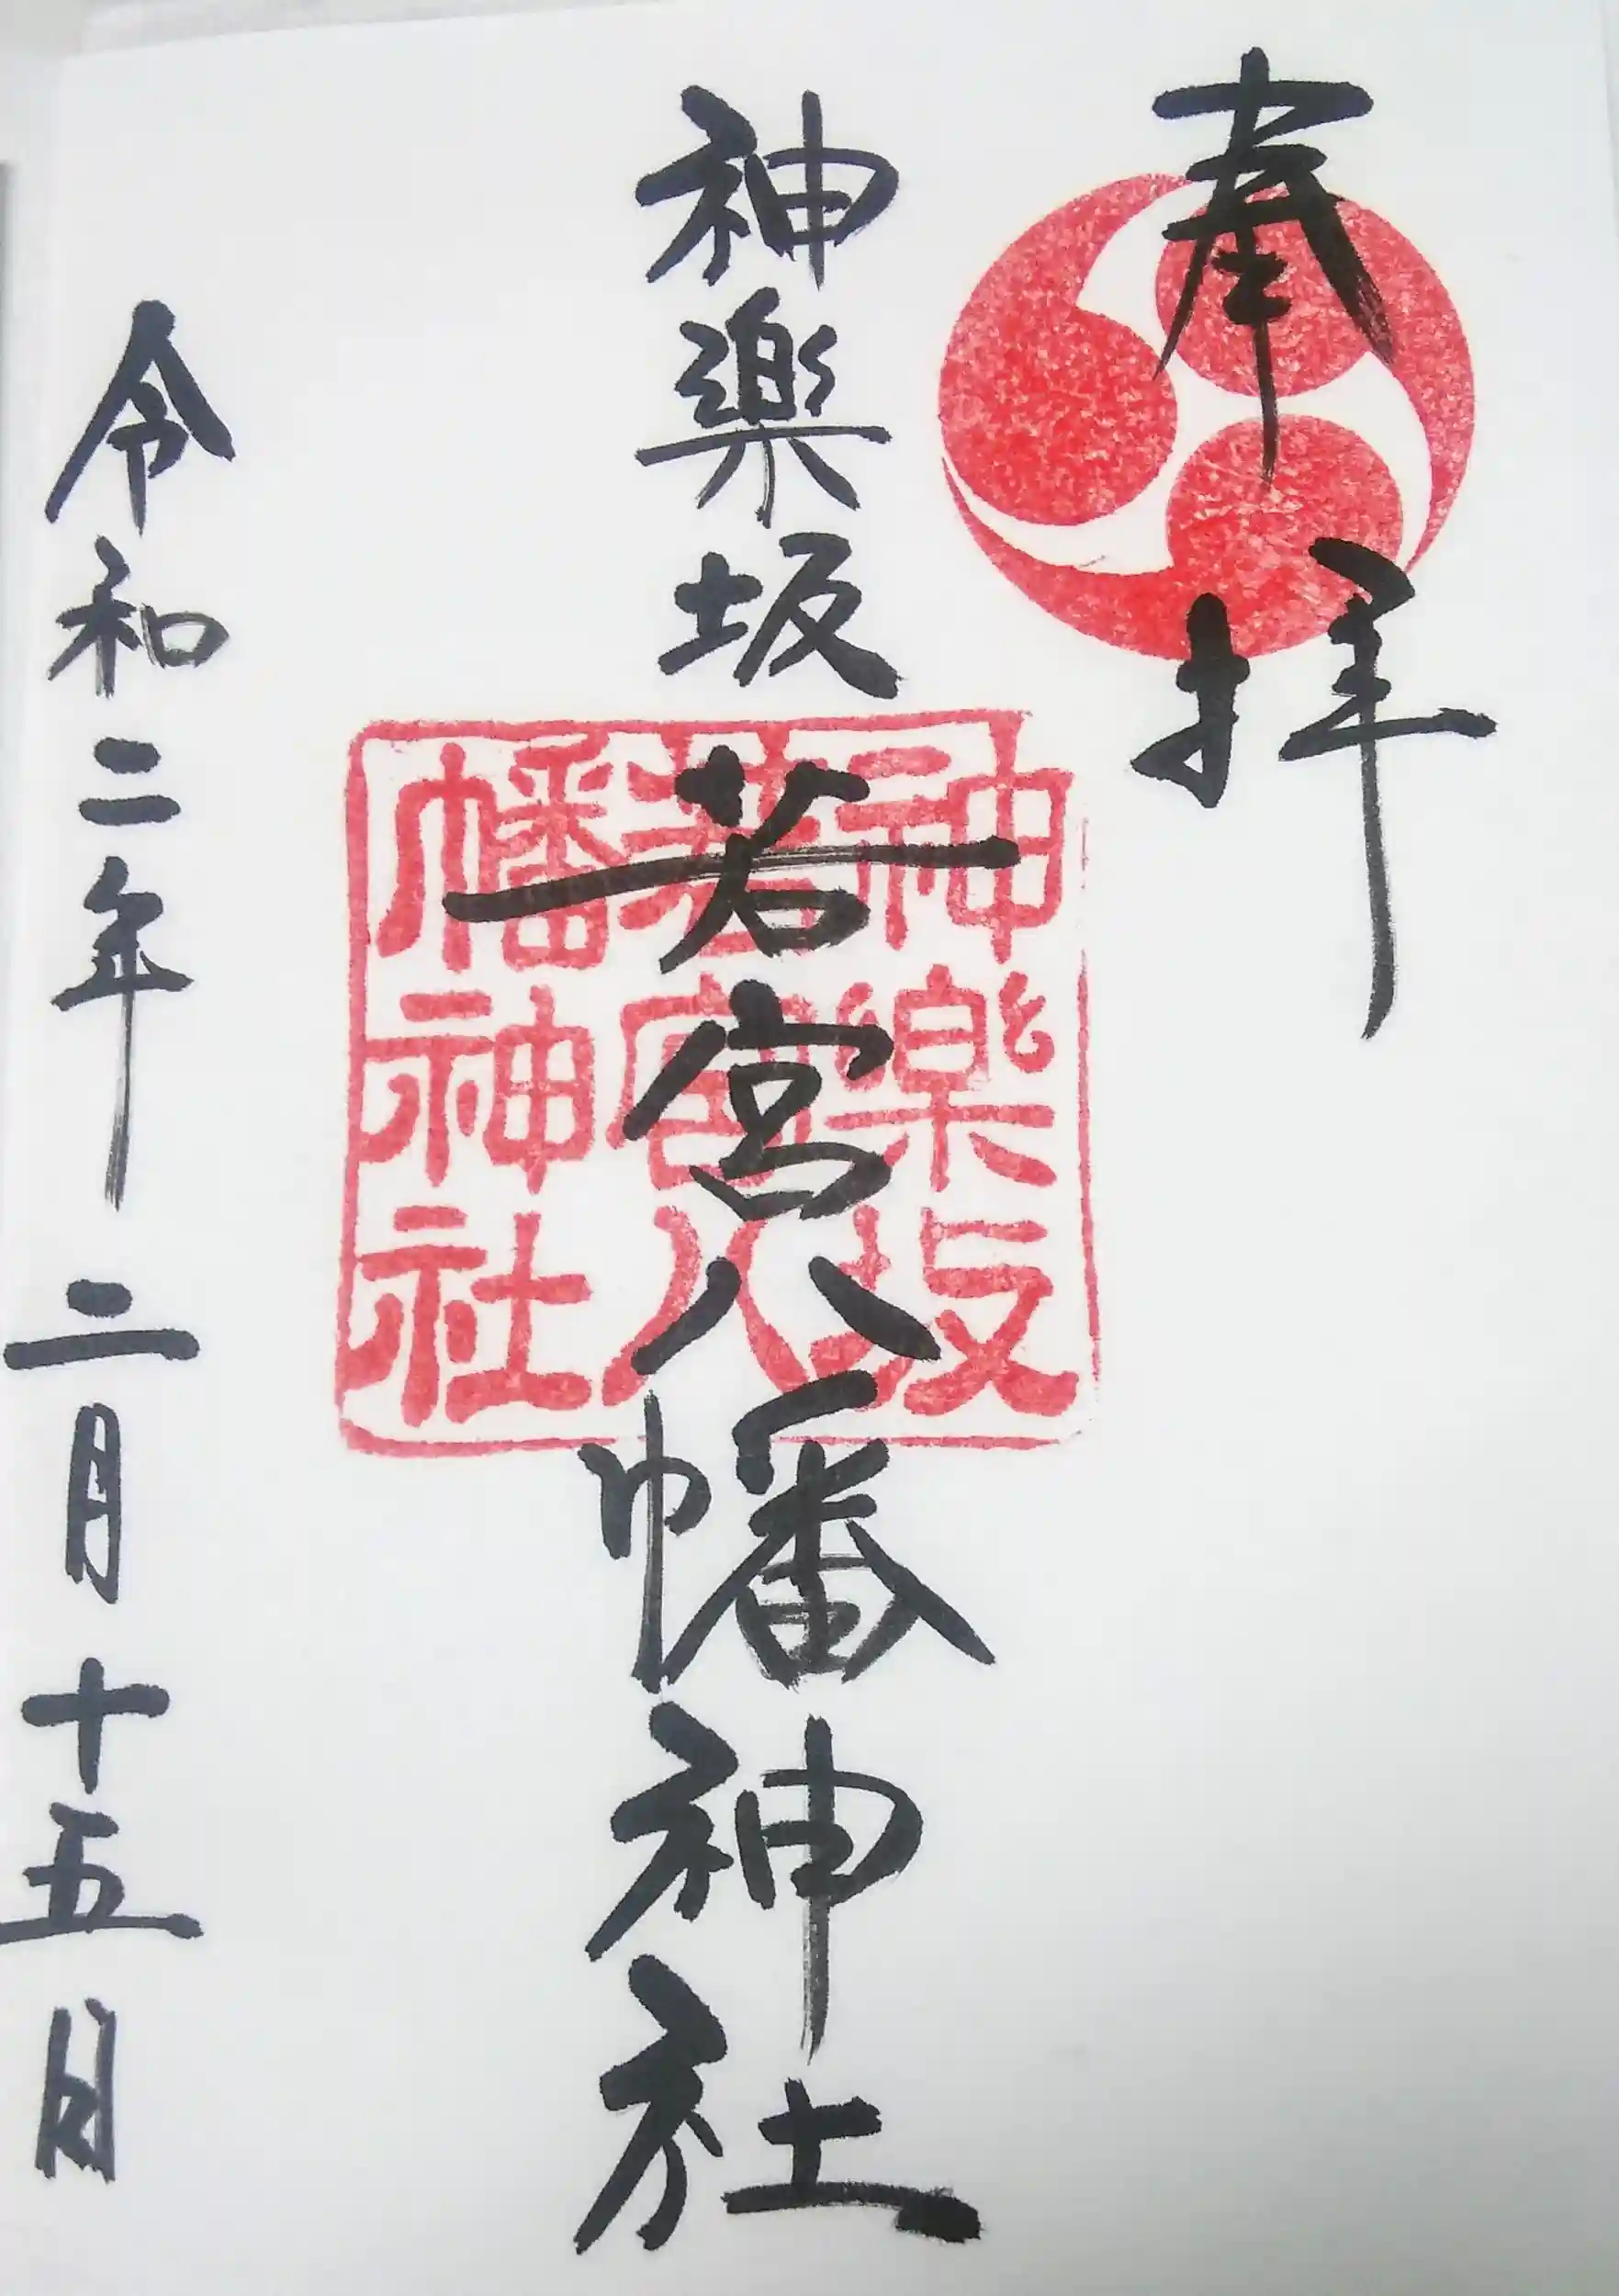 奉拝
神楽坂若宮八幡神社
神楽坂
若宮八
幡神社
令和二年二月十五日